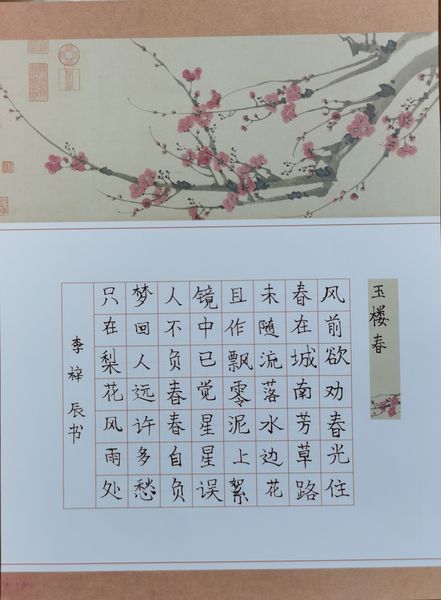 玉楼春
风前欲劝春光住
春在城南芳草路
未随流落水边花
且作飘零泥上絮
镜中已觉星星误
人不负春春自负
梦回人远许多愁
只在梨花风雨处
李梓辰书